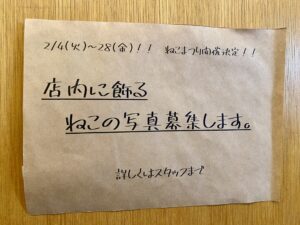 2/4(火)〜28(金)!! ねこまつり開催決定!!
店内に飾る
ねこの写真募集します。
詳しくはスタッフまで